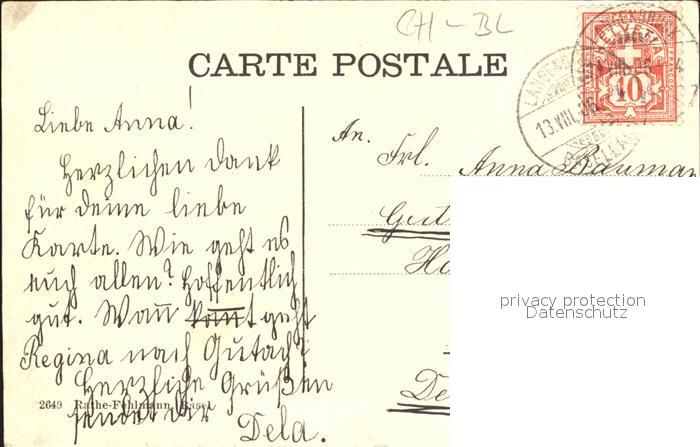 CH-BL
CARTE POSTALE
HELVETIA
10
13.VIII.06
Liebe Anna!
Herzlichen Dank
für deine liebe
Karte. Wie geht es
euch allen? Hoffentlich
gut. Wann kommt geht
Regina nach Gutach?
Herzliche Grüßen
sendet dir
Dela.
An.
Frl. Anna Bauman
Gut
Ho
De
privacy protection
Datenschutz
2649 Rathe-Fehlmann, Basel